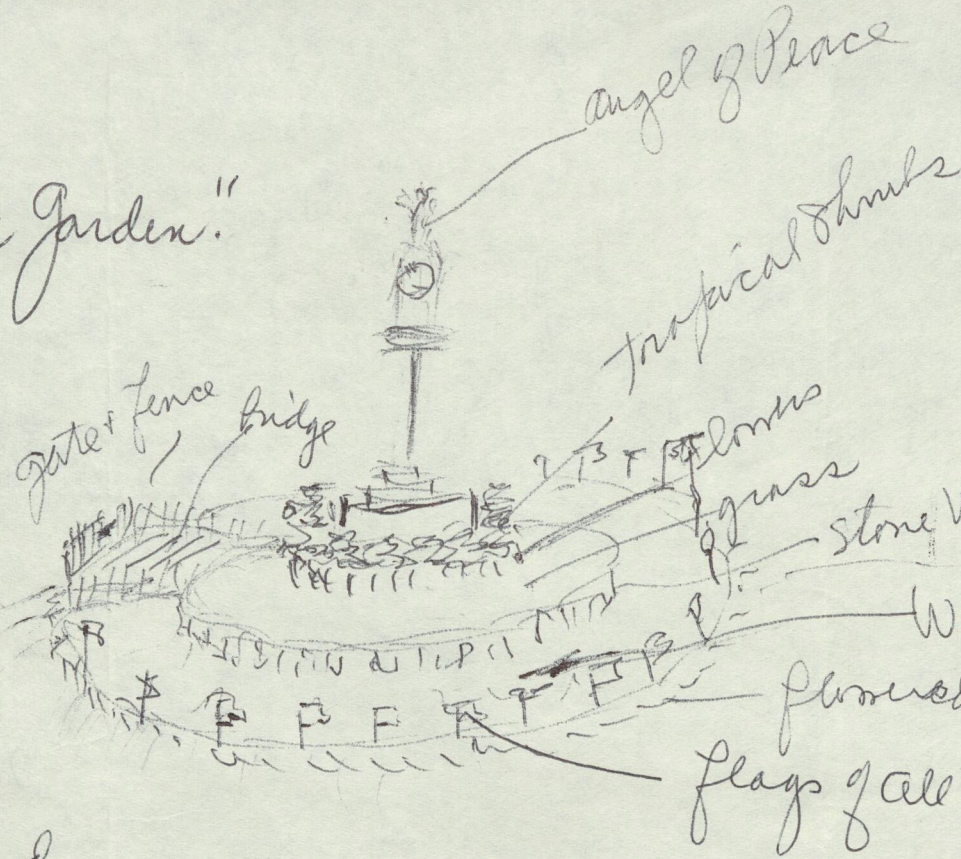 angel of Peace
Garden."
tropical shrubs
gate + fence
bridge
flowers
grass
stone W
W
flowered
flags of all